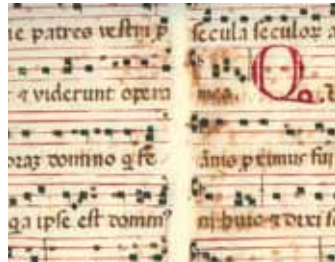 patres vestri p
et viderunt opera
domino q fe
q̃a ipse est domin⁹
secula seculoꝝ a
mea. Q
proximus fui
huic ⁊ dixi